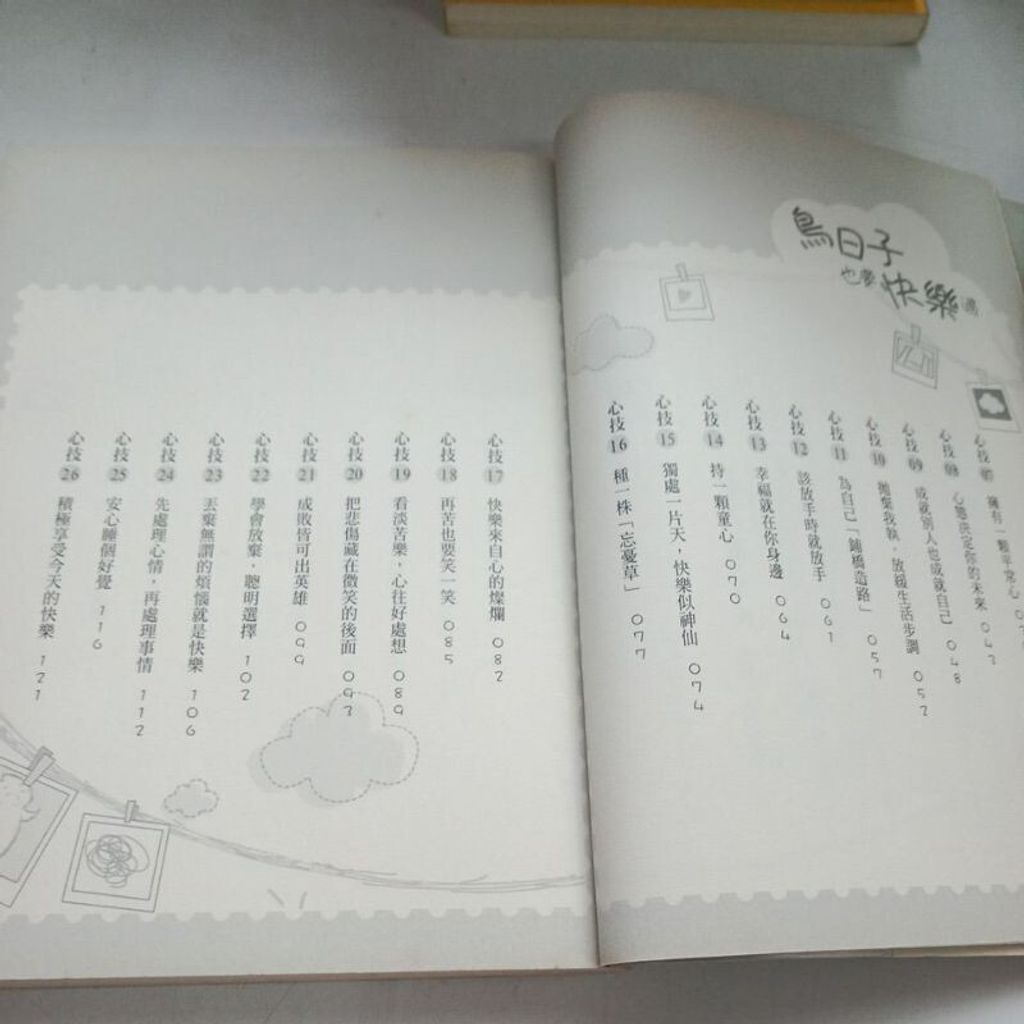 鳥日子
也要快樂過
心技07 擁有一顆平常心
心技08 心態決定你的未來 043
心技09 成就別人也成就自己 048
心技10 拋棄我執，放緩生活步調 052
心技11 為自己「鋪橋造路」 057
心技12 該放手時就放手 061
心技13 幸福就在你身邊 064
心技14 持一顆童心 070
心技15 獨處一片天，快樂似神仙 074
心技16 種一株「忘憂草」 077
心技17 快樂來自心的燦爛 082
心技18 再苦也要笑一笑 085
心技19 看淡苦樂，心往好處想 089
心技20 把悲傷藏在微笑的後面 093
心技21 成敗皆可出英雄 099
心技22 學會放棄，聰明選擇 102
心技23 丟棄無謂的煩惱就是快樂 106
心技24 先處理心情，再處理事情 112
心技25 安心睡個好覺 116
心技26 積極享受今天的快樂 121